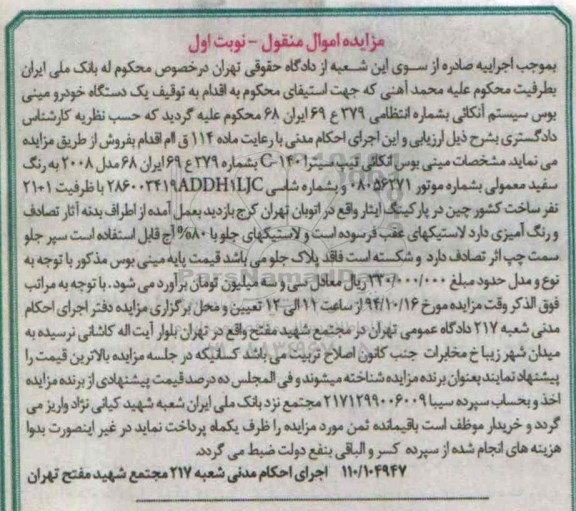 مزایده اموال منقول - نوبت اول
بموجب اجراییه صادره از سوی این شعبه از دادگاه حقوقی تهران درخصوص محکوم له بانک ملی ایران
بطرفیت محکوم علیه محمد آهنی که جهت استیفای محکوم به اقدام به توقیف یک دستگاه خودرو مینی
بوس سیستم آنکائی بشماره انتظامی ۳۷۹ ع ۶۹ ایران ۶۸ محکوم علیه گردید که حسب نظریه کارشناس
دادگستری بشرح ذیل ارزیابی و این اجرای احکام مدنی با رعایت ماده ۱۱۴ ق اام اقدام بفروش از طریق مزایده
می نماید مشخصات مینی بوس آنکائی تیپ سیترا C-۱۴۰۱ بشماره ۳۷۹ ع ۶۹ ایران ۶۸ مدل ۲۰۰۸ به رنگ
سفید معمولی بشماره موتور ۰۸۰۵۶۲۷۱ و بشماره شاسی ۲۸۶۰۰۳۴۱۹ADDH۱LJC با ظرفیت ۱+۲۱
نفر ساخت کشور چین در پارکینگ ایثار واقع در اتوبان تهران کرج بازدید بعمل آمده از اطراف بدنه آثار تصادف
و رنگ آمیزی دارد لاستیکهای عقب فرسوده است و لاستیکهای جلو با ۸۰% آج قابل استفاده است سپر جلو
سمت چپ اثر تصادف دارد و شکسته است فاقد پلاک جلو می باشد قیمت پایه مینی بوس مذکور با توجه به
نوع و مدل حدود مبلغ ۳۳۰/۰۰۰/۰۰۰ ریال معادل سی و سه میلیون تومان برآورد می شود. با توجه به مراتب
فوق الذکر وقت مزایده مورخ ۹۴/۱۰/۱۶ از ساعت ۱۱ الی ۱۲ تعیین و محل برگزاری مزایده دفتر اجرای احکام
مدنی شعبه ۲۱۷ دادگاه عمومی تهران در مجتمع شهید مفتح واقع در تهران بلوار آیت اله کاشانی نرسیده به
میدان شهر زیبا خ مخابرات جنب کانون اصلاح تربیت می باشد کسانیکه در جلسه مزایده بالاترین قیمت را
پیشنهاد نمایند بعنوان برنده مزایده شناخته میشوند و فی المجلس ده درصد قیمت پیشنهادی از برنده مزایده
اخذ و بحساب سپرده سیبا ۲۱۷۱۲۹۹۰۰۶۰۰۹ مجتمع نزد بانک ملی ایران شعبه شهید کیانی نژاد واریز می
گردد و خریدار موظف است باقیمانده ثمن مورد مزایده را ظرف یکماه پرداخت نماید در غیر اینصورت بدوا
هزینه های انجام شده از سپرده کسر و الباقی بنفع دولت ضبط می گردد.
۱۱۰/۱۰۴۹۴۷ اجرای احکام مدنی شعبه ۲۱۷ مجتمع شهید مفتح تهران